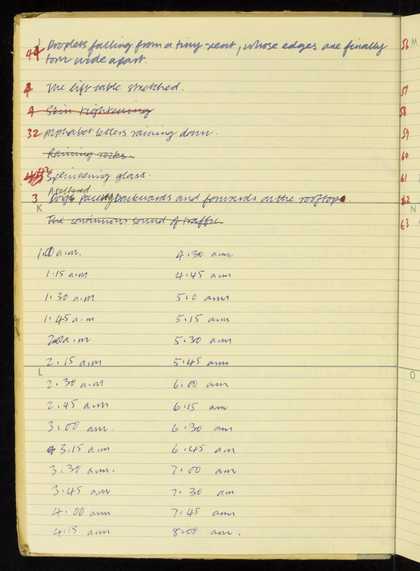 44 Droplets falling from a tiny rent, whose edges are finally
torn wide apart.
4 The lift cable stretched.
4 Skin tightening
32 Alphabet letters raining down.
Raining rocks.
45 Splintering glass.
3 Dogs pacing backwards and forwards on the rooftops
K
The continuous sound of traffic.
1.0 a.m. 4.30 am
1.15 a.m 4.45 am
1.30 a.m 5.0 am
1.45 a.m 5.15 am
2.00 a.m 5.30 am
2.15 a.m 5.45 am
L
2.30 a.m 6.00 am
2.45 a.m 6.15 am
3.00 am. 6.30 am
3.15 a.m 6.45 am
3.30 a.m. 7.00 am
3.45 am 7.30 am
4.00 am 7.45 am
4.15 am 8.00 am.
56 M
57
58
59
60
61
62
N
63
O